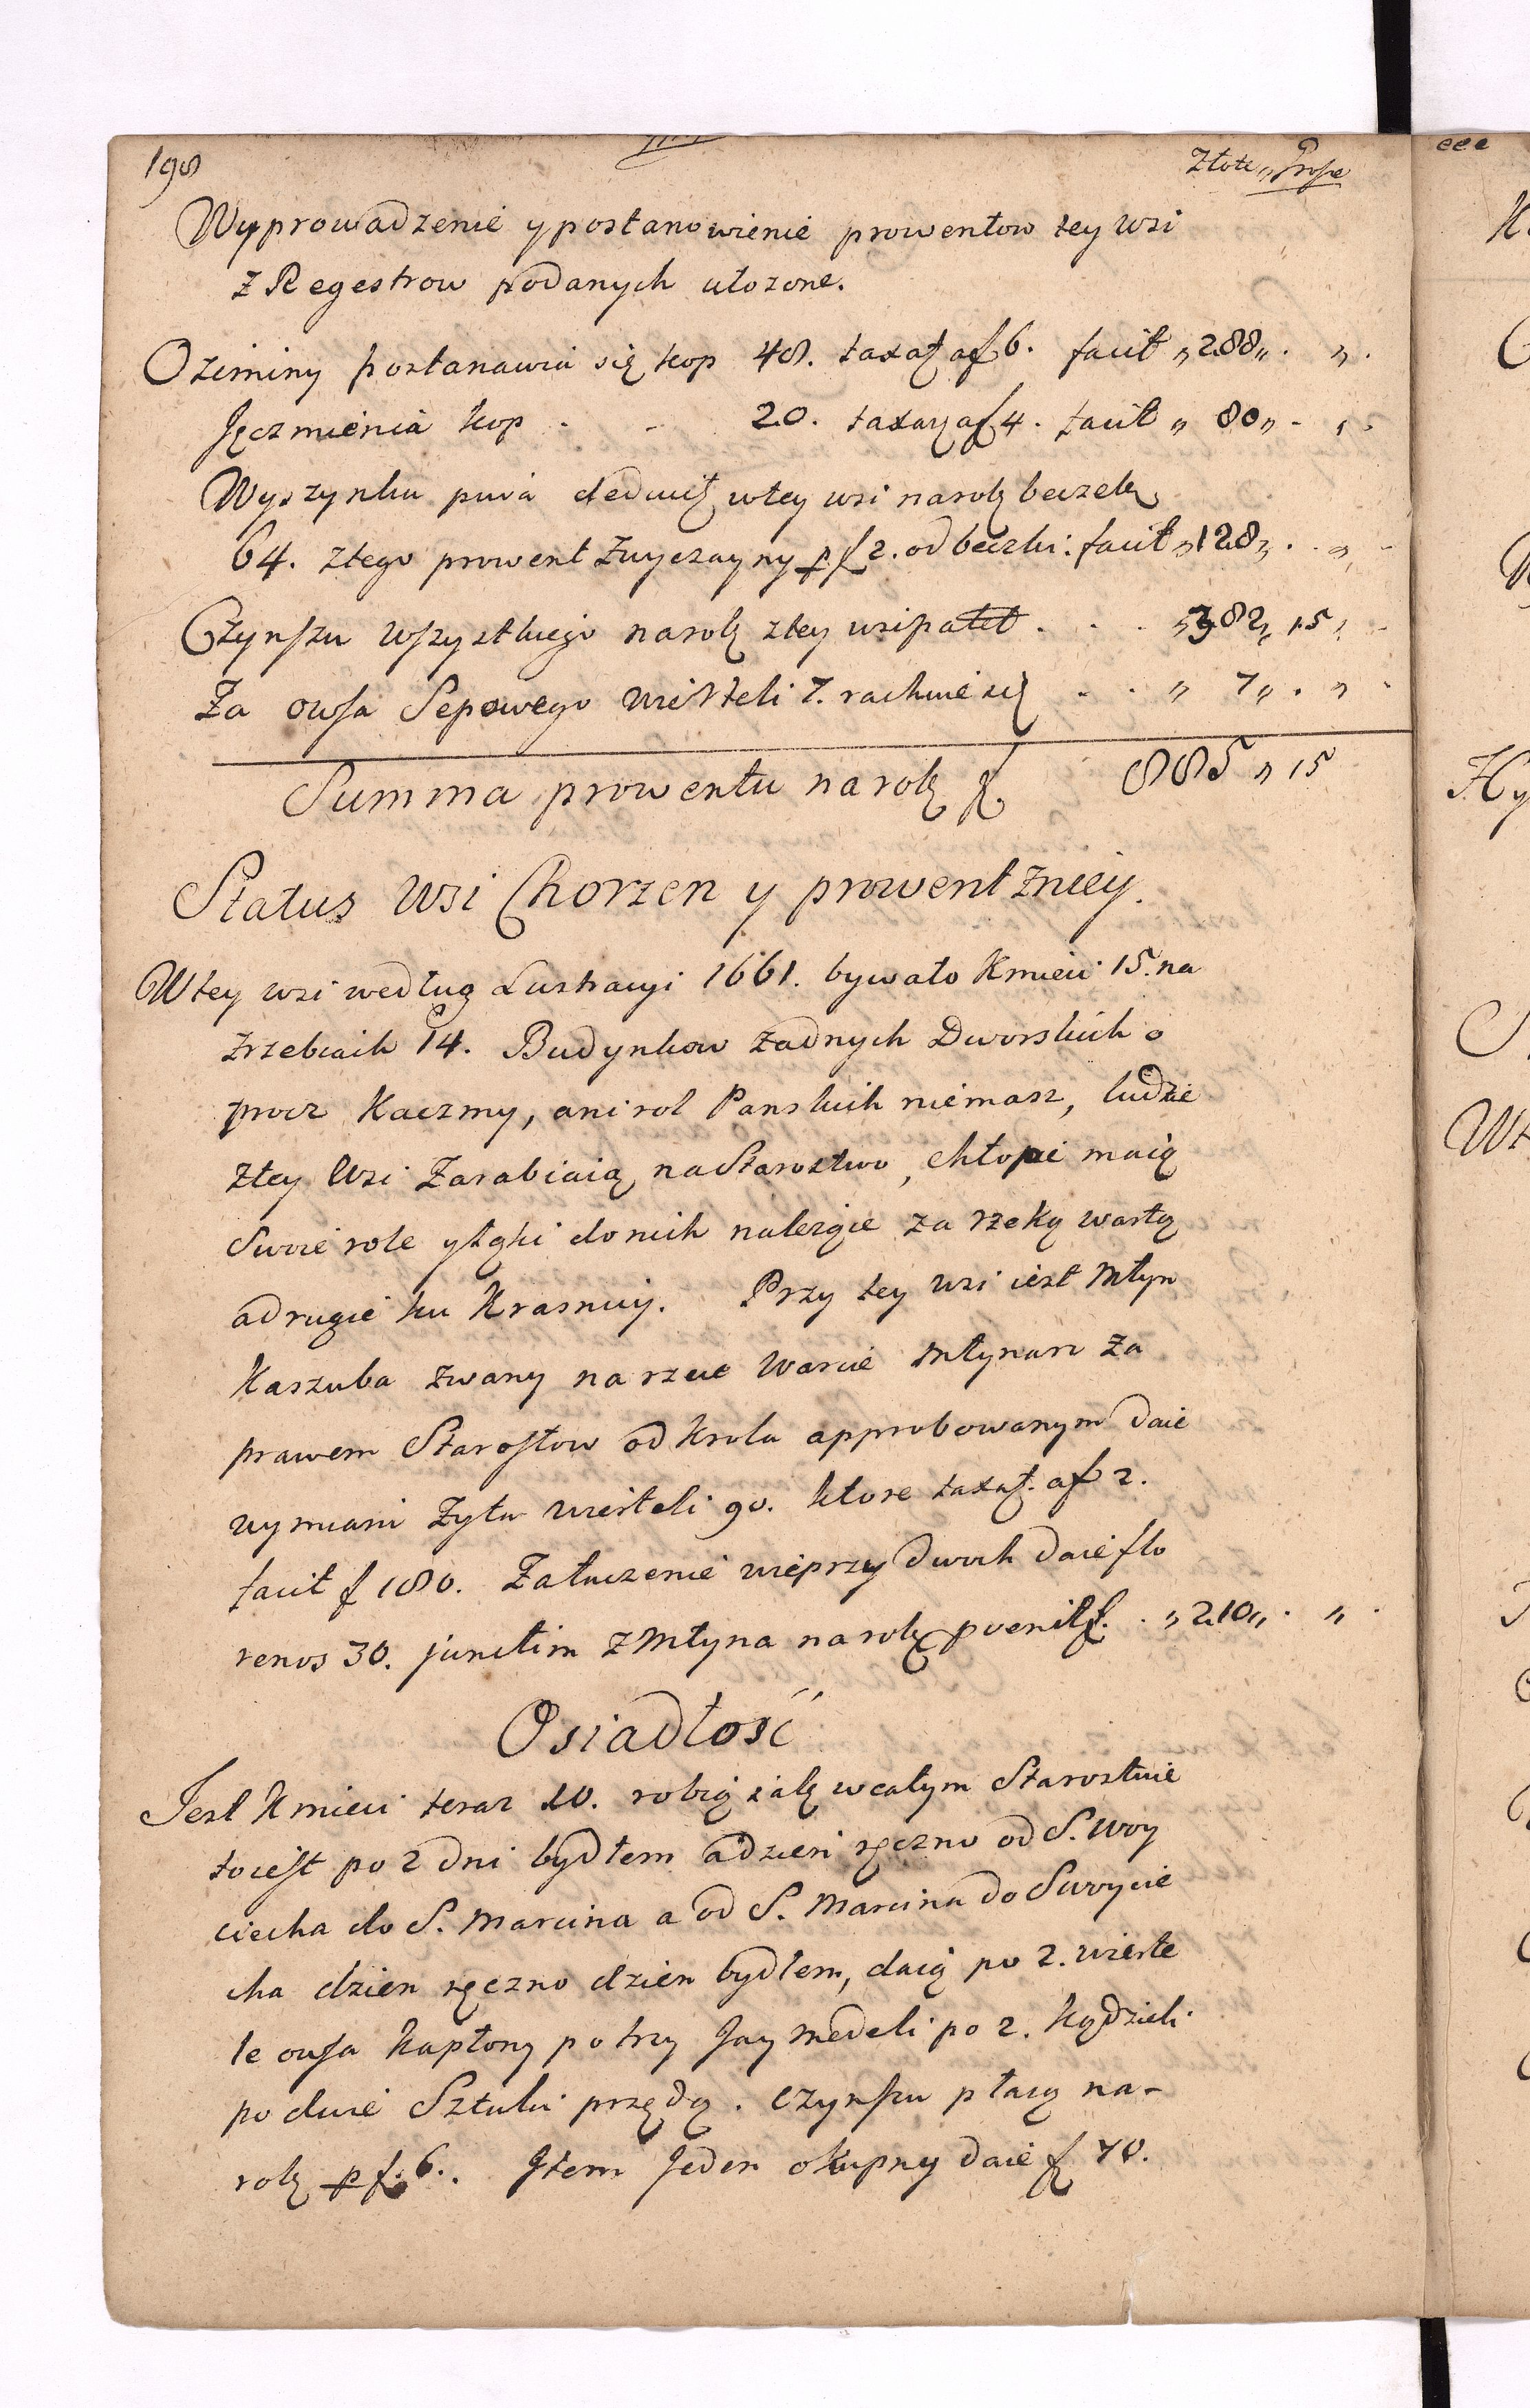 198
Złote „ Grosze
Wyprowadzenie y postanowienie prowentow tey wsi
z Regestrow podanych ułozone.
Oziminy postanawia się kop 48. taxaṯ a f 6. facit „ 288 „ . „ .
Jęczmienia kop . - 20. taxaṯ a f 4. facit „ 80 „ - „ .
Wyszynku piwa deducit w tey wsi na rok beczek
64. z tego prowent zwyczayny p f 2. od beczki. facit „ 128 „ . „ -
Czynszu wszystkiego na rok z tey wsi patet . . . „ 382 „ 15 „ -
Za owsa Sepowego wierteli 7. rachuie się . . „ 7 „ . „ .
Summa prowentu na rok f 885 „ 15
Status wsi Chorzen y prowent zniey.
W tey wsi według Lustracyi 1661. bywało Kmieci 15. na
zrzebiach 14. Budynkow zadnych Dworskich o
procz Kaczmy, ani rol Panskich niemasz, ludzie
z tey Wsi zarabiaią na Starostwo, chłopi maią
Swoie role y łąki do nich nalezące za rzeką wartą
a drugie ku Krasnicy. Przy tey wsi iest Młyn
Kaszuba zwany na rzece Warcie Młynarz za
prawem Starostow od Krola approbowanym daie
wymiaru Zyta wierteli 90. ktore taxaṯ. a f 2.
facit f 180. Za tuczenie wieprzy dwoch daie flo
renos 30. junctim z Młyna na rok pvenit f. . „ 210 „ . „ .
Osiadłość
Jest Kmieci teraz 10. robią iak w całym Starostwie
to iest po 2 dni bydłem a dzien ręczno od S. Woy
ciecha do S. Marcina a od S. Marcina do S Woycie
cha dzien ręczno dzien bydłem, daią po 2. wierte
le owsa kapłony po trzy Jay medeli po 2. Kądzieli
po dwie Sztuki przędą. czynszu płacą na-
rok p f. 6.. Item Jeden okupny daie f 70.
eee